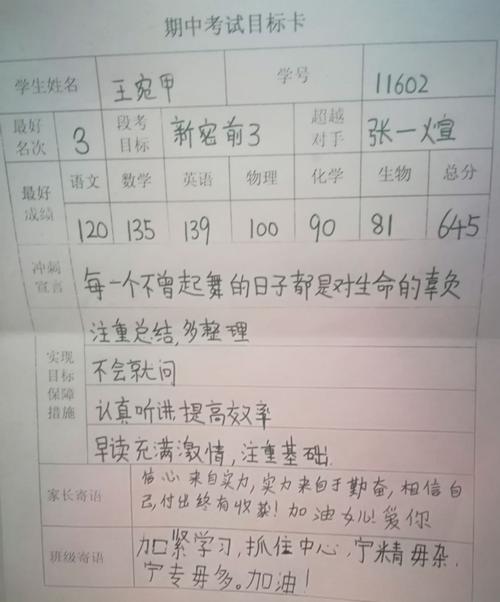 期中考试目标卡
学生姓名 王宛甲 学号 11602
最好名次 3 段考目标 新密前3 超越对手 张一煊
最好成绩 语文 数学 英语 物理 化学 生物 总分
120 135 139 100 90 81 645
冲刺宣言 每一个不曾起舞的日子都是对生命的辜负
实现目标保障措施 注重总结,多整理
不会就问
认真听讲,提高效率
早读充满激情,注重基础.
家长寄语 信心来自实力,实力来自于勤奋,相信自
己,付出终有收获!加油女儿!爱你
班级寄语 加紧学习,抓住中心,宁精毋杂,
宁专毋多。加油!